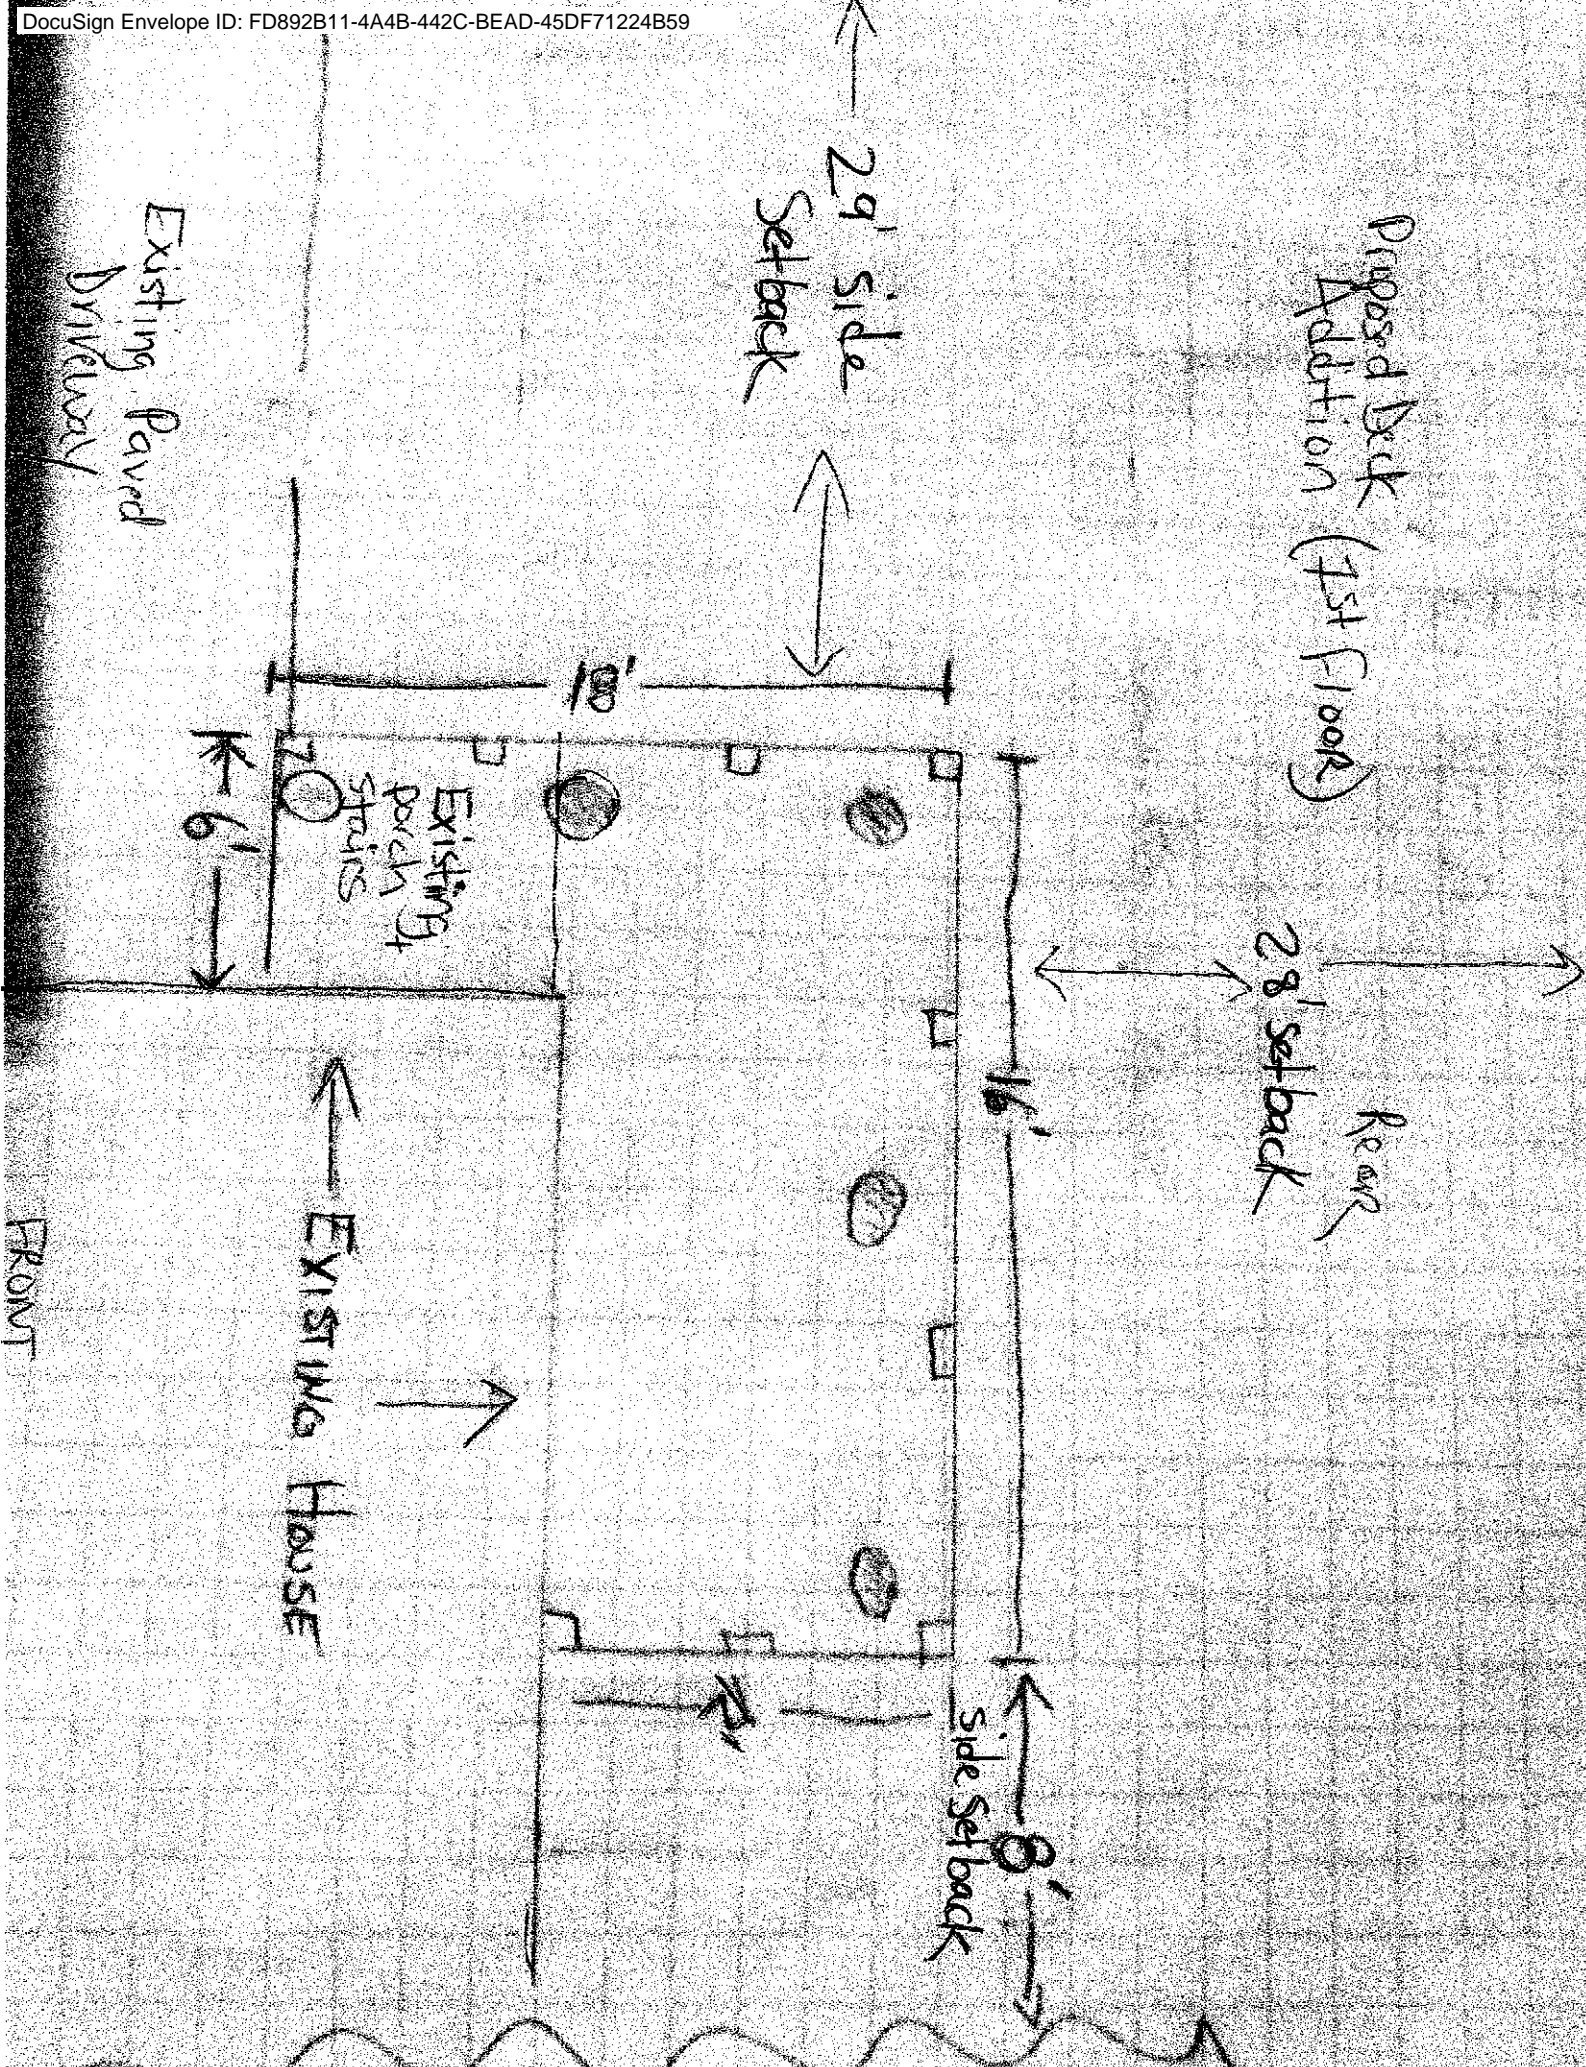 DocuSign Envelope ID: FD892B11-4A4B-442C-BEAD-45DF71224B59
Proposed Deck
Addition (1st Floor)
Rear
28' setback
29' side
Setback
16'
8'
Side Setback
18'
Existing
porch +
stairs
6'
Existing Paved
Driveway
EXISTING HOUSE
FRONT